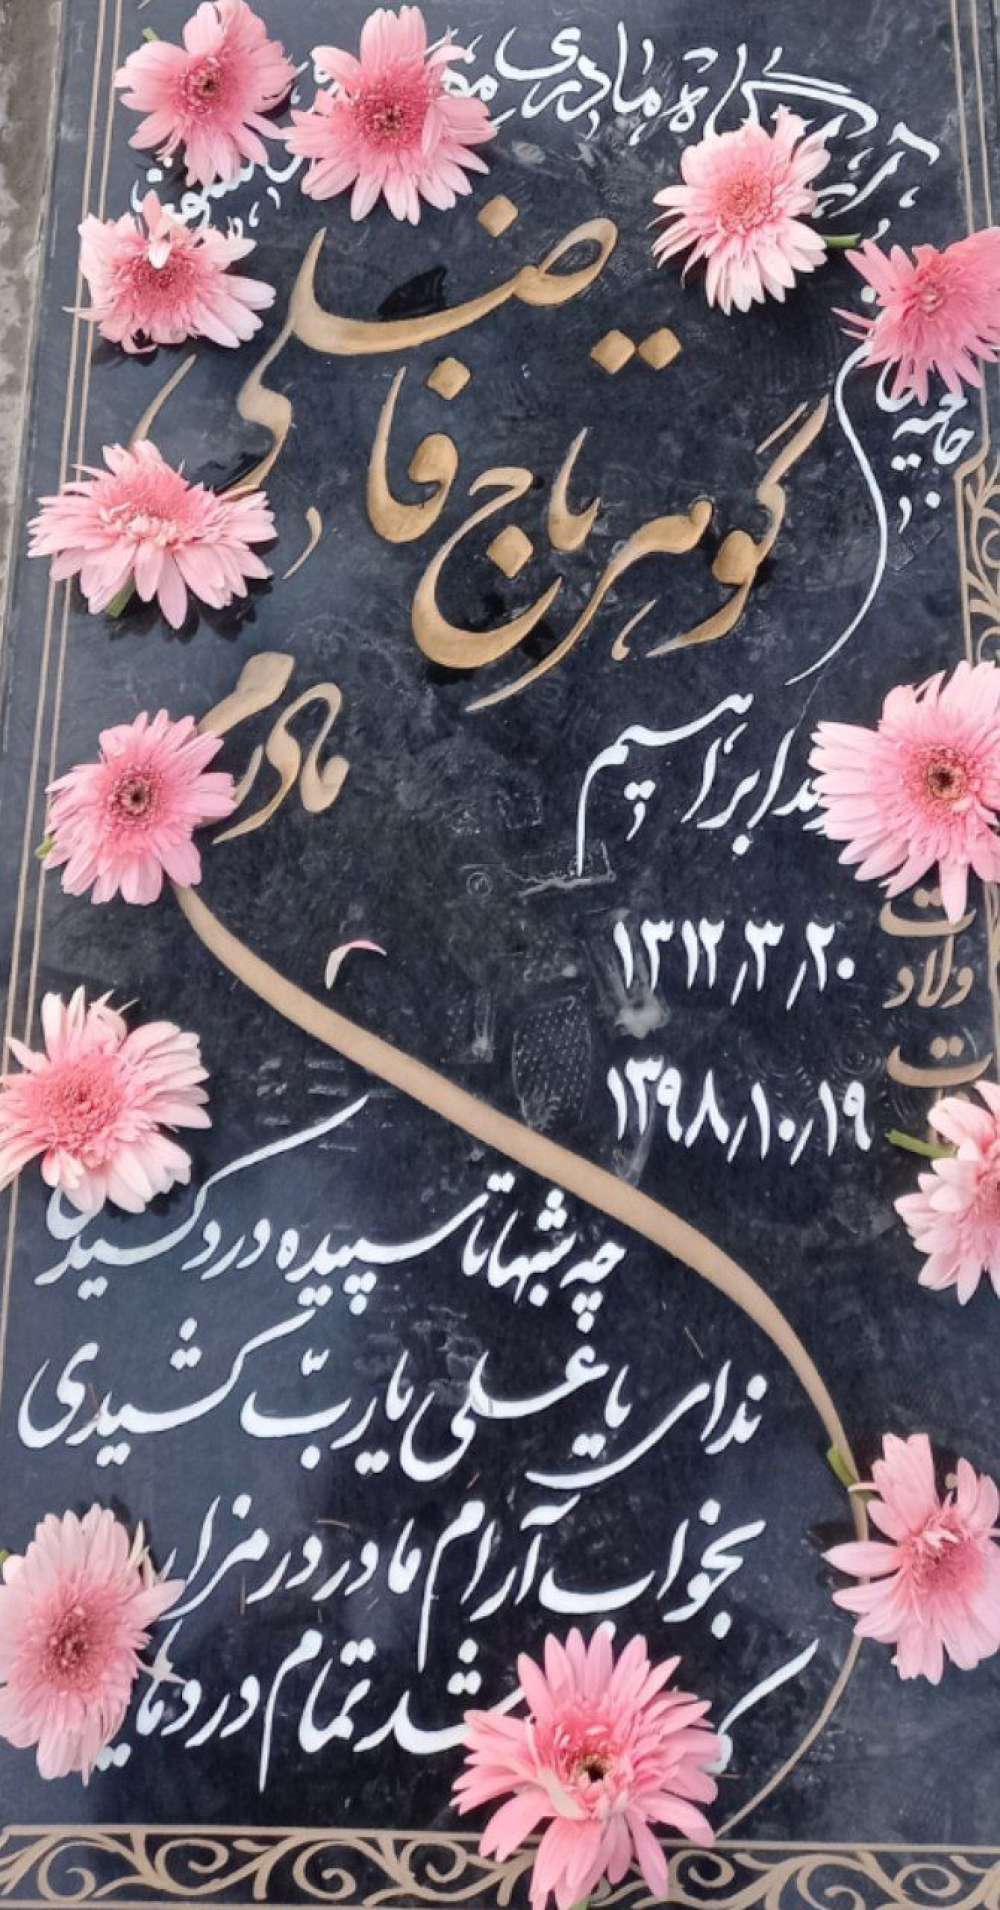 آرامگاه مادری
حاجیه
گوهرتاج فاضلی
مادرم
ابراهیم
ولادت ۱۳۱۲٫۳٫۲۰
ت ۱۳۹۸٫۱۰٫۱۹
چه شبها تا سپیده درد کشیدی
ندای یا علی یا ربّ کشیدی
بخواب آرام مادر در مزار
شد تمام دردهای